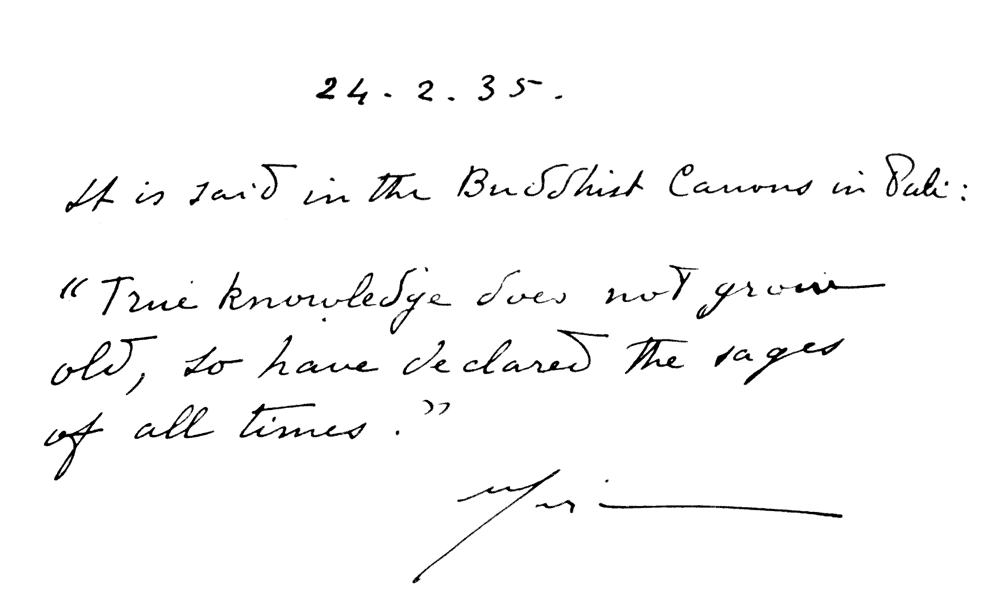 24.2.35.
It is said in the Buddhist Canons in Pali:
"True knowledge does not grow
old, so have declared the sages
of all times."